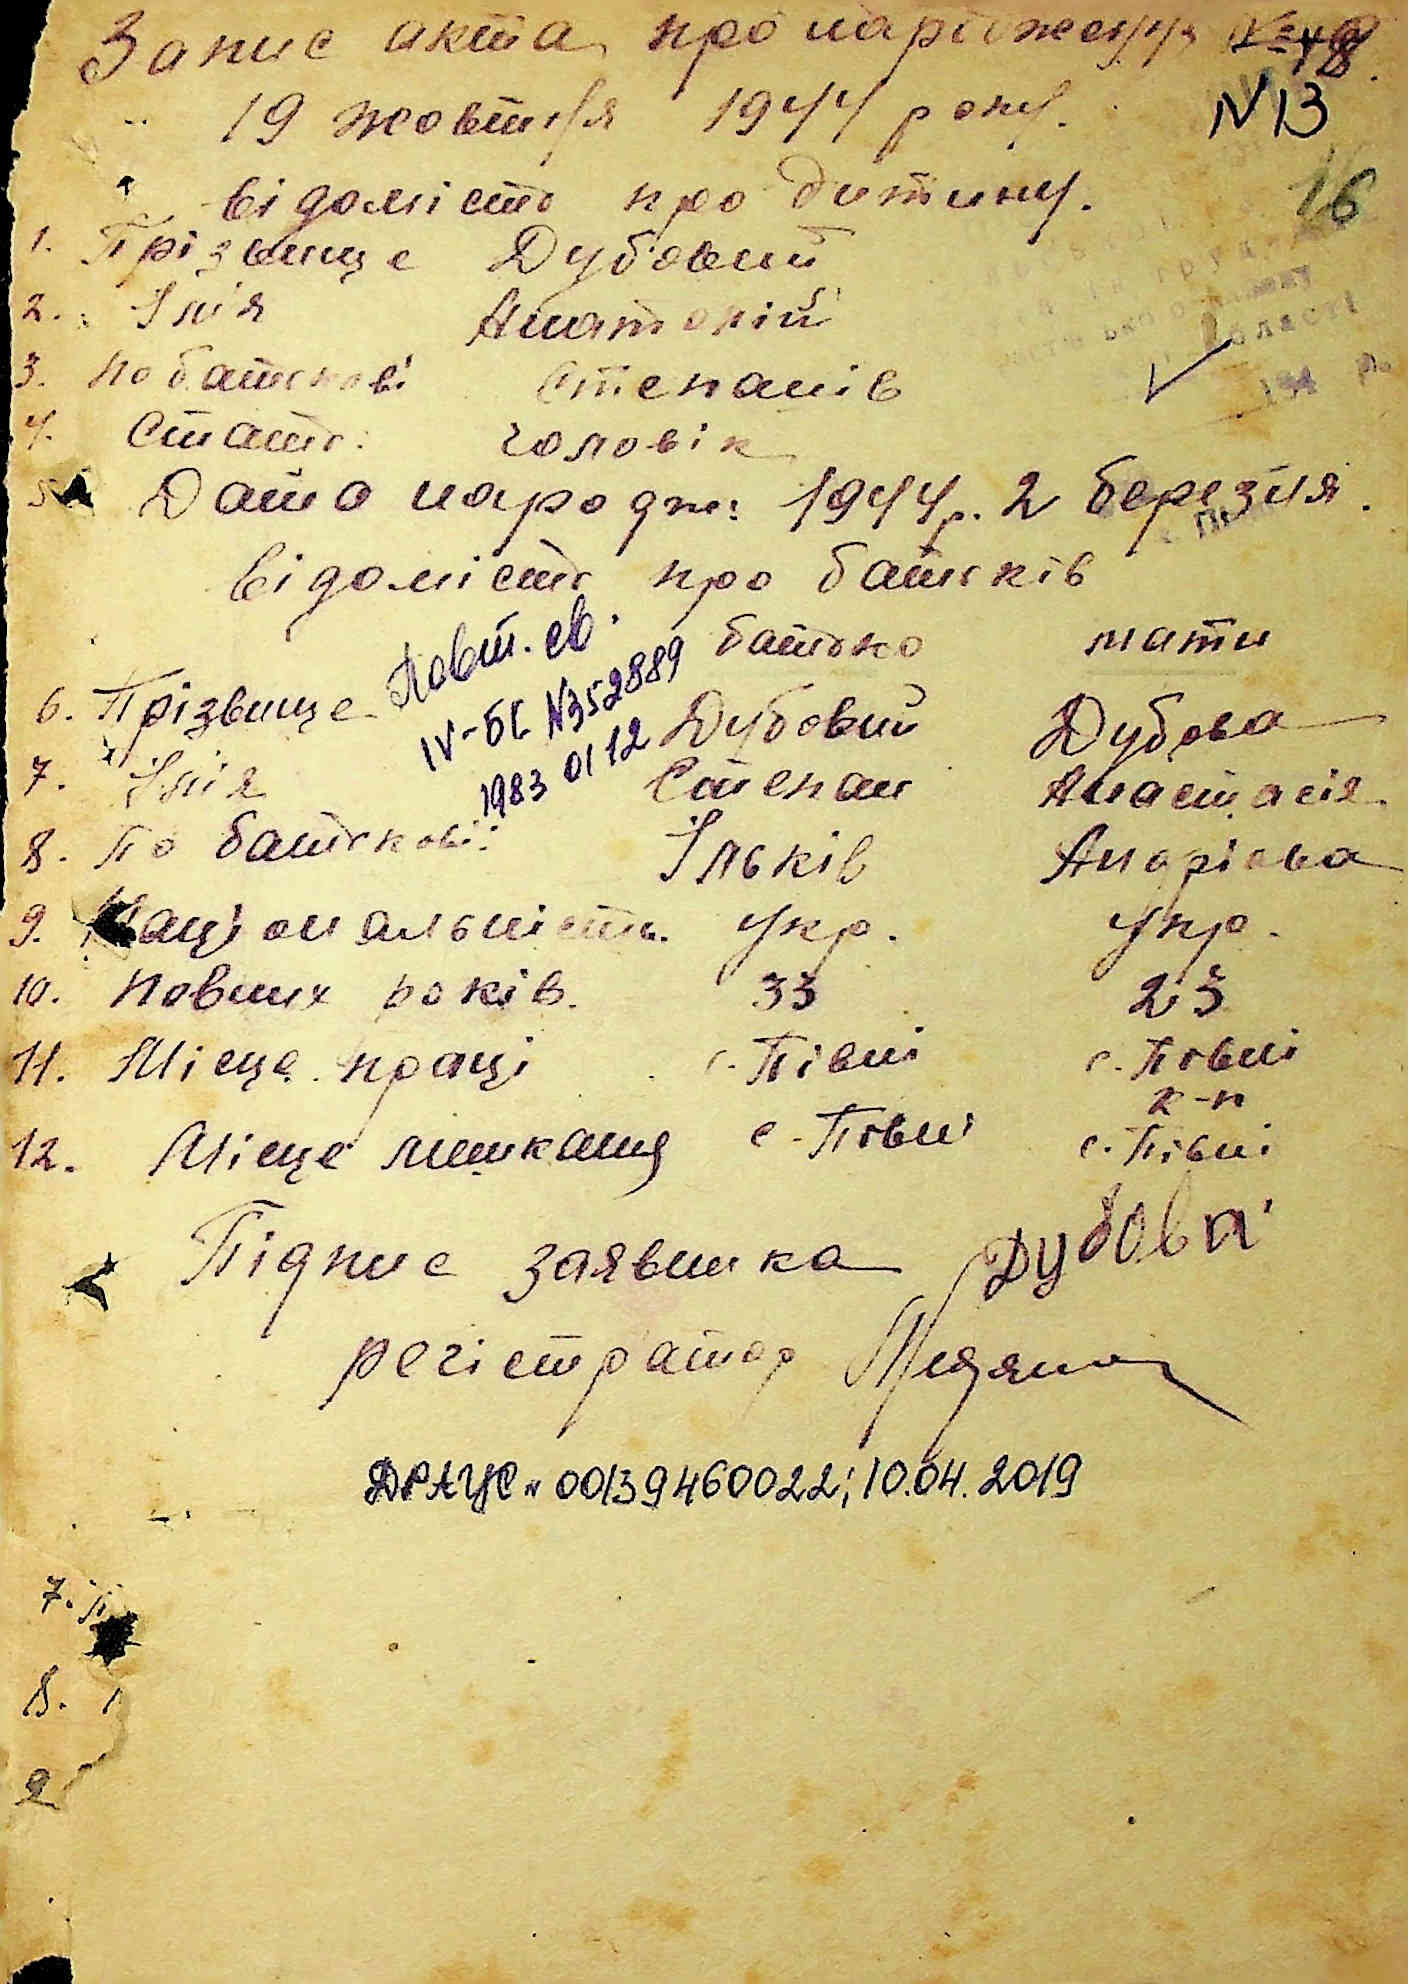 Запис акта про народження № 18.
19 жовтня 1944 року. N 13
Відомість про дитину. 16
1. Прізвище Дубовий
2. Ім'я Анатолій
3. По батькові Степанів
4. Стать: чоловік
5 Дата народж: 1944 р. 2 березня.
Відомість про батьків
Повт. св. батько мати
IV-БК N352889
1983 01 12
6. Прізвище Дубовий Дубова
7. Ім'я Степан Анастасія
8. По батькові: Ільків Андрієва
9. Національність. Укр. Укр.
10. Повних років. 33 23
11. Місце праці с. Півні с. Півні
к-п
12. Місце мешкання с. Півні с. Півні
Підпис заявника Дубова
регістратор
ДРАЦС № 00139460022; 10.04.2019
7.
8.
9